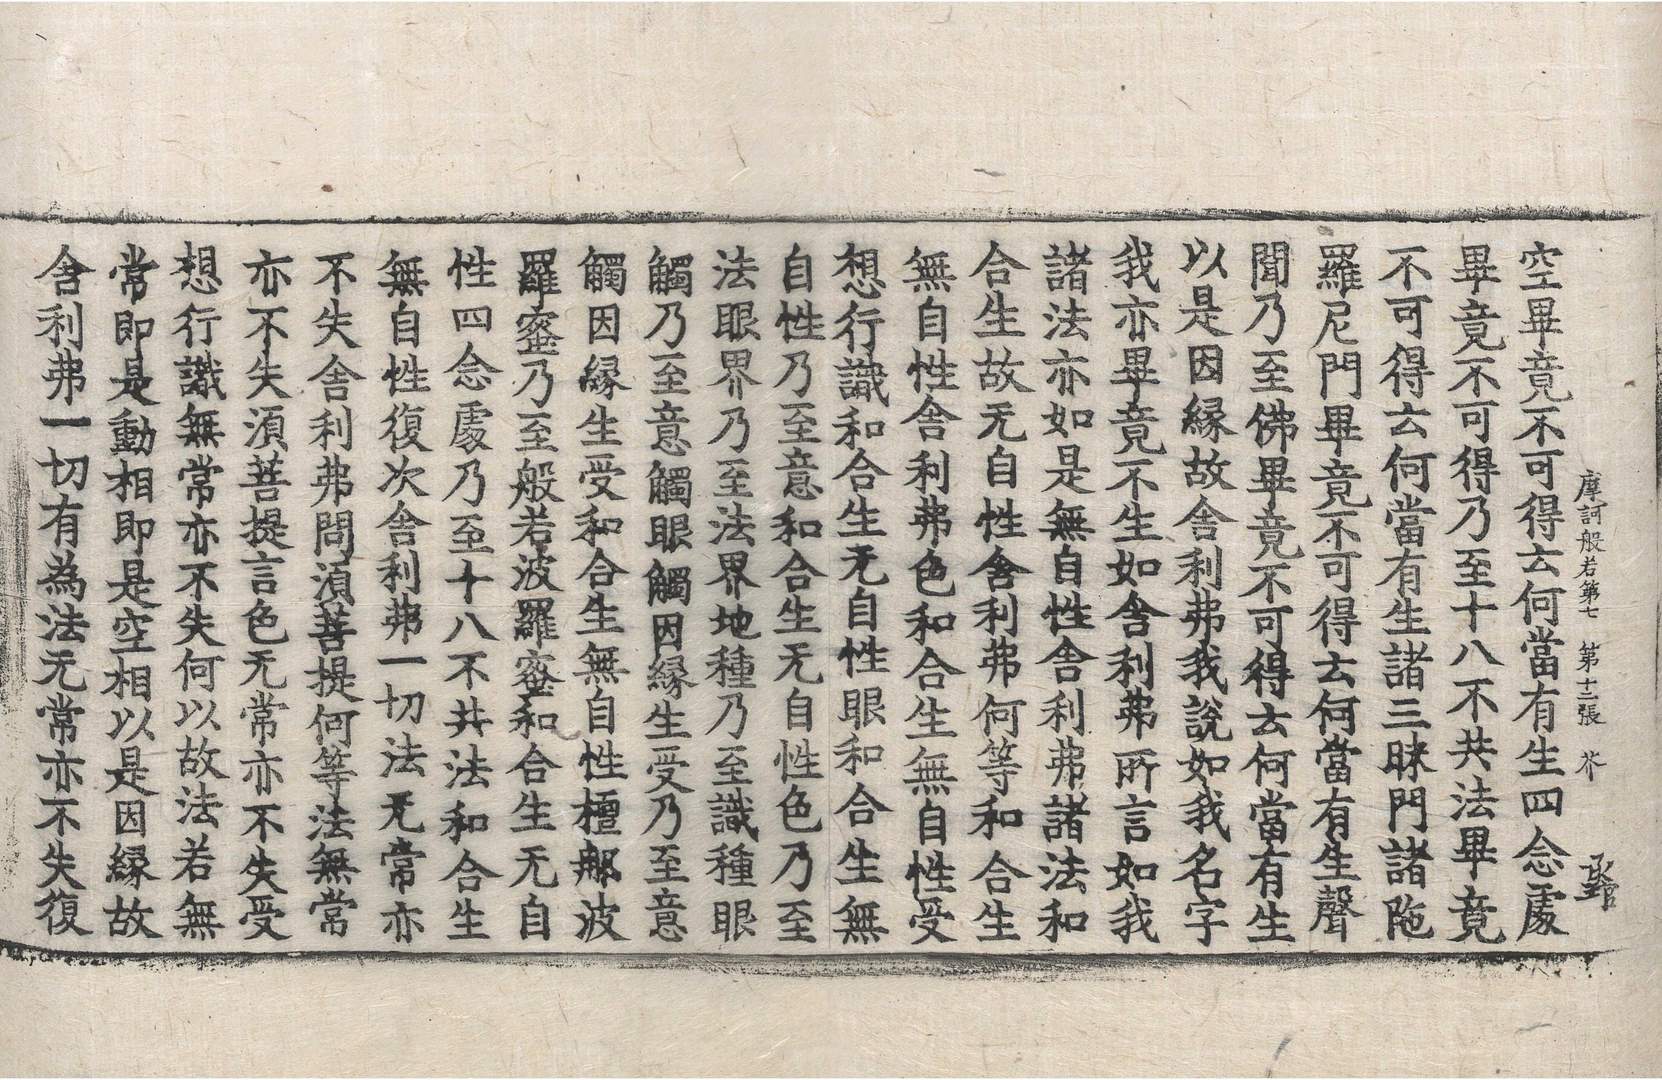 摩訶般若第七 第十二張 芥
空畢竟不可得云何當有生四念處
畢竟不可得乃至十八不共法畢竟
不可得云何當有生諸三昧門諸陁
羅尼門畢竟不可得云何當有生聲
聞乃至佛畢竟不可得云何當有生
以是因緣故舍利弗我說如我名字
我亦畢竟不生如舍利弗所言如我
諸法亦如是無自性舍利弗諸法和
合生故无自性舍利弗何等和合生
無自性舍利弗色和合生無自性受
想行識和合生无自性眼和合生無
自性乃至意和合生无自性色乃至
法眼界乃至法界地種乃至識種眼
觸乃至意觸眼觸因緣生受乃至意
觸因緣生受和合生無自性檀那波
羅蜜乃至般若波羅蜜和合生无自
性四念處乃至十八不共法和合生
無自性復次舍利弗一切法无常亦
不失舍利弗問須菩提何等法無常
亦不失須菩提言色无常亦不失受
想行識無常亦不失何以故法若無
常即是動相即是空相以是因緣故
舍利弗一切有為法无常亦不失復